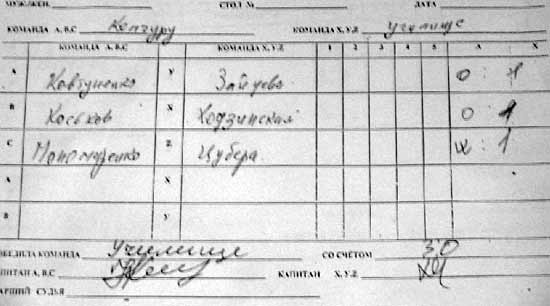 МУЖ./ЖЕН. СТОЛ № ДАТА
КОМАНДА А,В,С Кенгуру КОМАНДА Х,У,Z училище
КОМАНДА А,В,С КОМАНДА Х,У,Z 1 2 3 4 5 А Х
А Ковтуненко У Зайцева 0 : 1
В Коськов Х Ходзинская 0 1
С Мономаренко Z Цубера 0 : 1
А Х
В У
ОБЕДИЛА КОМАНДА Училище СО СЧЕТОМ 3:0
ПИТАН А, В,С КАПИТАН Х,У,Z
АРШИЙ СУДЬЯ